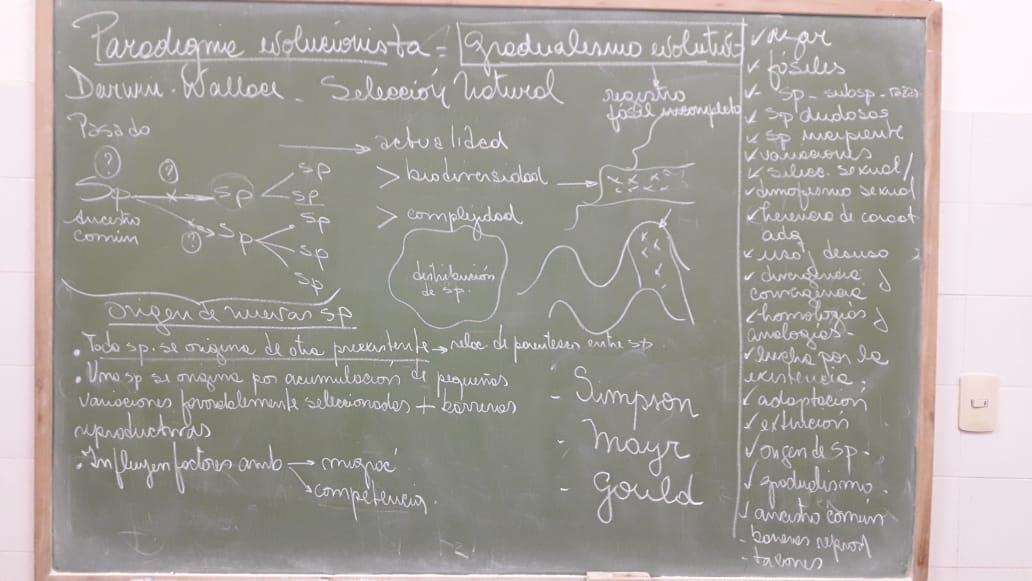 Paradigma evolucionista = Gradualismo evolutivo
Darwin - Wallace - Selección Natural
registro
fósil incompleto
Pasado
?
?
Sp
sp
sp
sp
sp
Ancestro
común
?
Sp
sp
sp
actualidad
> biodiversidad
> complejidad
distribución
de sp.
origen de nuevas sp
• Toda sp. se origina de otra preexistente → relac. de parentesco entre sp.
• Una sp se origina por acumulación de pequeñas
variaciones favorablemente seleccionadas + barreras
reproductivas
• Influyen factores amb → migrac
→ competencia.
- Simpson
- Mayr
- Gould
✓ azar
✓ fósiles
✓ sp - subsp - razas
✓ sp dudosas
✓ sp incipiente
✓ variaciones
✓ selecc. sexual /
✓ dimofismo sexual
✓ herencia de caract
adq
✓ uso / desuso
✓ divergencia y
convergencia
✓ homologías y
analogías -
✓ lucha por la
existencia.
✓ adaptación
✓ extinción
✓ origen de sp -
✓ gradualismo.
✓ ancestro común
- barreras reprod
- taxones